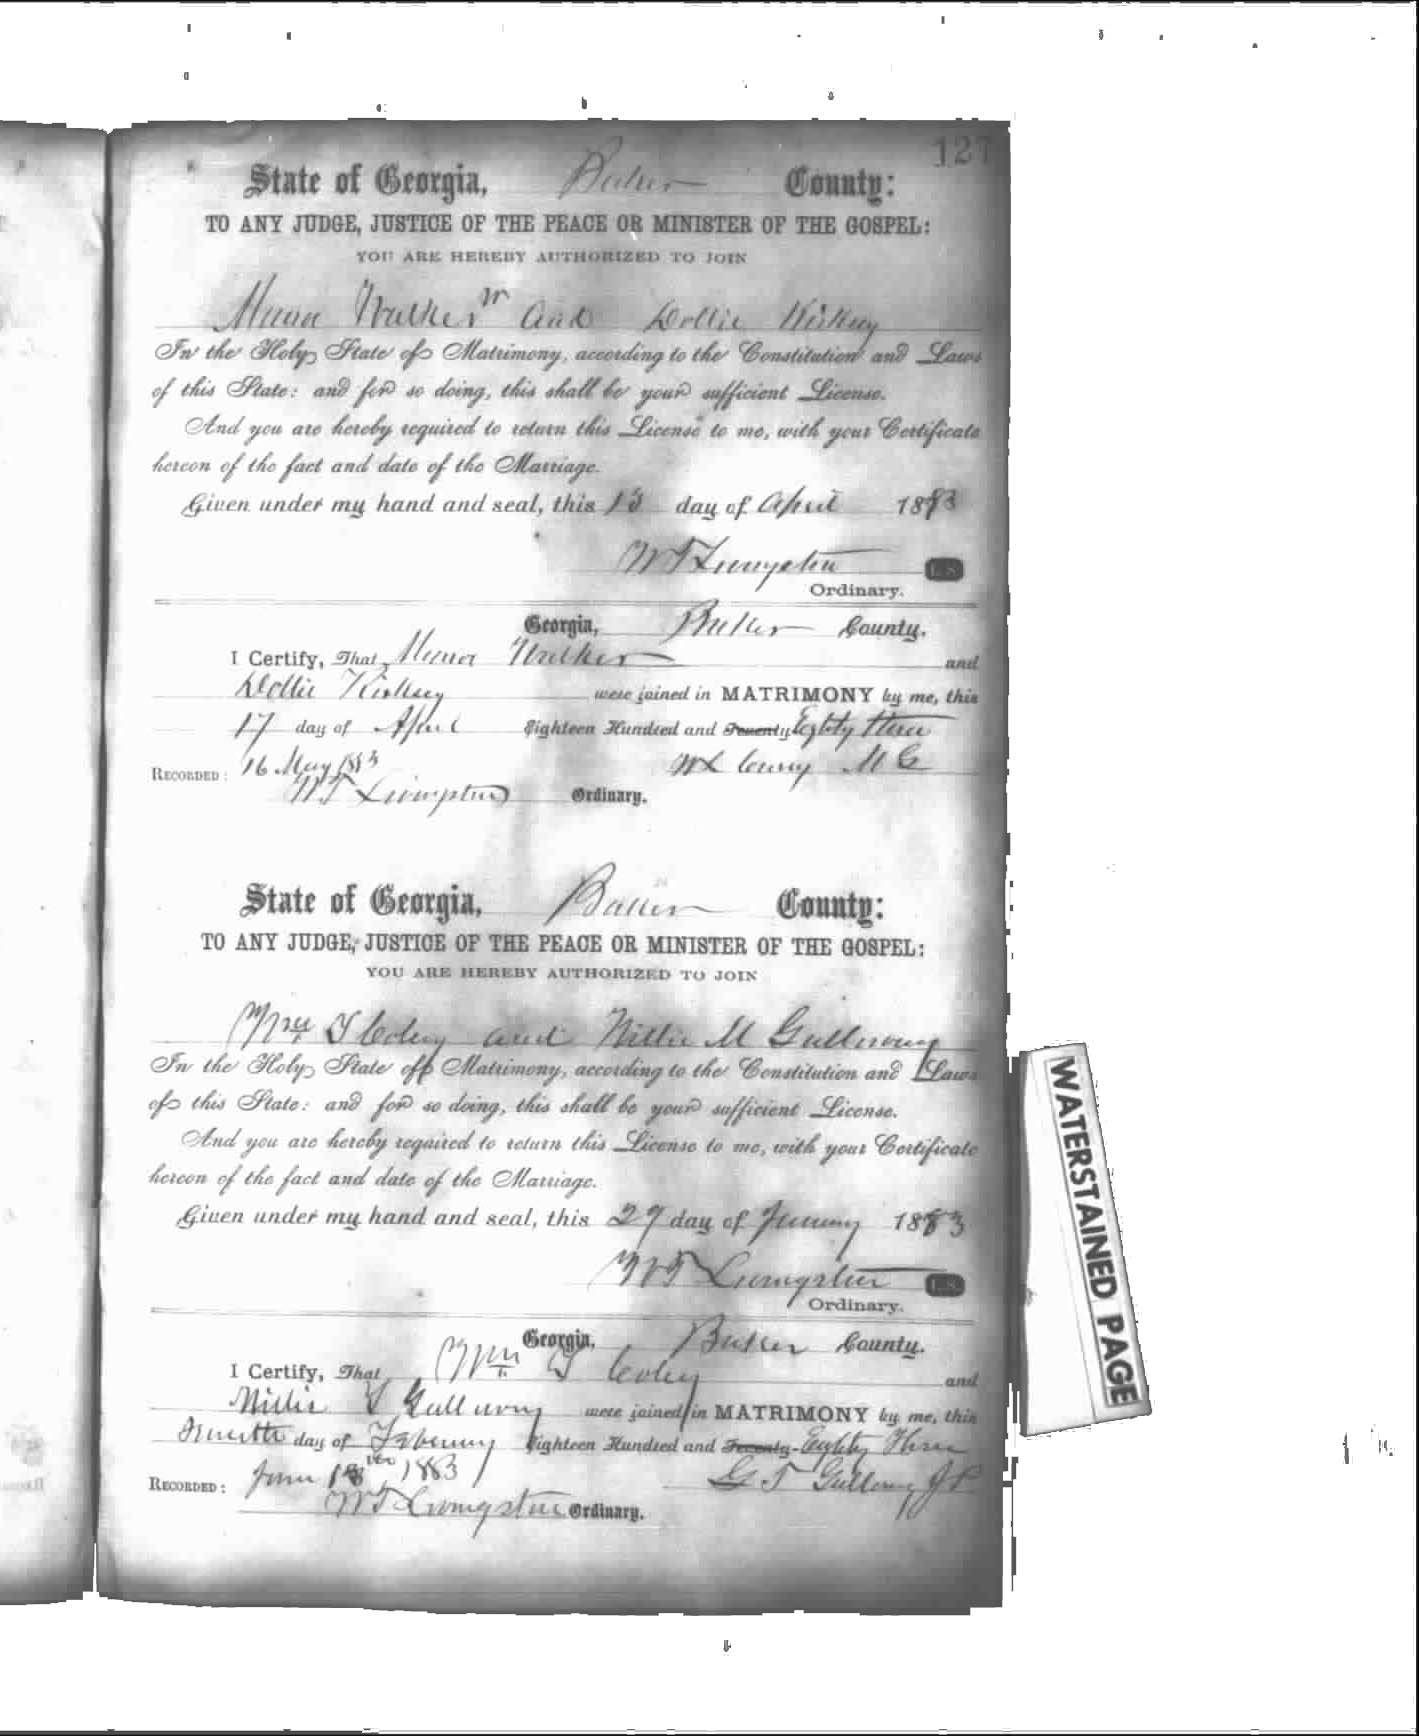 127
State of Georgia, Baker County:
TO ANY JUDGE, JUSTICE OF THE PEACE OR MINISTER OF THE GOSPEL:
YOU ARE HEREBY AUTHORIZED TO JOIN
Walker and Dollie Kirksey
In the Holy State of Matrimony, according to the Constitution and Laws
of this State: and for so doing, this shall be your sufficient License.
And you are hereby required to return this License to me, with your Certificate
hereon of the fact and date of the Marriage.
Given under my hand and seal, this 13 day of April 1883
W T Livingston L.S.
Ordinary.
Georgia, Baker County.
I Certify, That Walker and
Dollie Kirksey were joined in MATRIMONY by me, this
17 day of April Eighteen Hundred and Twenty Eighty three
RECORDED: 16 May 1883 W L M G
W T Livingston Ordinary.
State of Georgia, Baker County:
TO ANY JUDGE, JUSTICE OF THE PEACE OR MINISTER OF THE GOSPEL:
YOU ARE HEREBY AUTHORIZED TO JOIN
Wm T Coley and Millie M Galloway
In the Holy State of Matrimony, according to the Constitution and Laws
of this State: and for so doing, this shall be your sufficient License.
And you are hereby required to return this License to me, with your Certificate
hereon of the fact and date of the Marriage.
Given under my hand and seal, this 29 day of January 1883
W T Livingston L.S.
Ordinary.
Georgia, Baker County.
I Certify, That Wm T Coley and
Millie Galloway were joined in MATRIMONY by me, this
day of February Eighteen Hundred and Twenty- Eighty Three
RECORDED: June 1883 G T Galloway J P
W T Livingston Ordinary.
WATERSTAINED PAGE